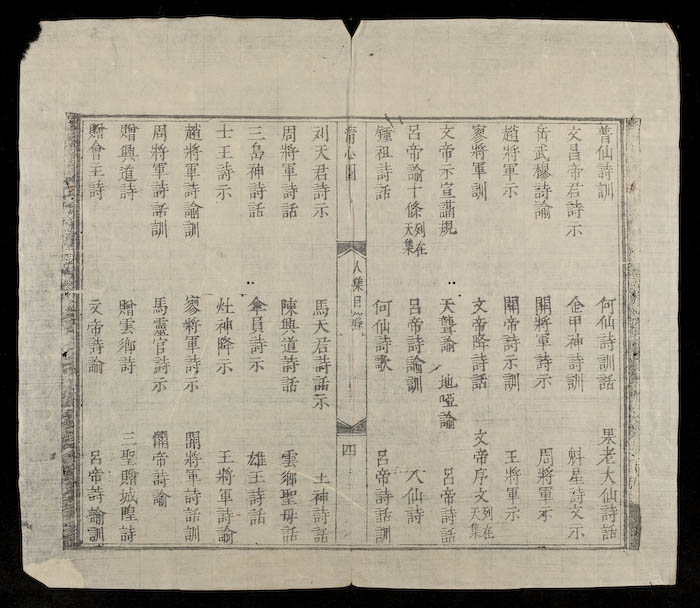 普仙詩訓 何仙詩訓話 果老大仙詩話
文昌帝君詩示 金甲神詩訓 魁星詩文示
岳武穆詩諭 開將軍詩示 周將軍示
趙將軍示 關帝詩示訓 王將軍示
寥將軍訓 文帝降詩話 文帝序文列在天集
文帝示宣講規 天聾諭 地啞諭 呂帝詩話
呂帝諭十條列在天集 呂帝詩諭訓 八仙詩
鍾祖詩話 何仙詩歌 呂帝詩話訓
清心 人集目錄 四
刘天君詩示 馬天君詩話示 土神詩話
周將軍詩話 陳興道詩話 雲鄉聖母話
三島神詩話 傘員詩示 雄王詩話
士王詩示 灶神降示 王將軍詩諭
趙將軍詩諭訓 寥將軍詩示 開將軍詩話訓
周將軍詩話訓 馬靈官詩示 關帝詩諭
贈興道詩 贈雲鄉詩 三聖贈城隍詩
贈會主詩 文帝詩諭 呂帝詩諭訓